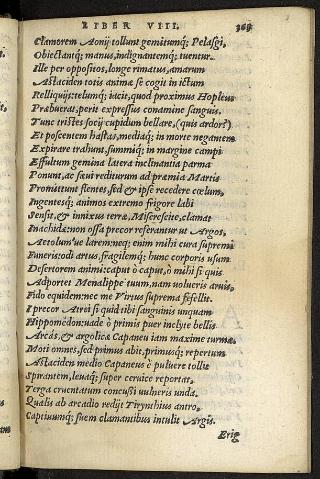 LIBER VIII. 369
Clamorem Aonij tollunt gemitumq; Pelasgi,
Obiectantq; manus, indignantemq; tuentur.
Ille per oppositos, longe rimatus, amarum
Astaciden totis animæ se cogit in ictum
Relliquijs; telumq; iacit, quod proximus Hopleus
Præbuerat, perit expressus conamine sanguis.
Tunc tristes socij cupidum bellare, (quis ardor?)
Et poscentem hastas, mediaq; in morte negantem
Expirare trahunt, summiq; in margine campi
Effultum gemina latera inclinantia parma
Ponunt, ac sæui rediturum ad præmia Martis
Promittunt flentes, sed & ipse recedere cœlum,
Ingentesq; animos extremo frigore labi
Sensit, & innixus terræ, Miserescite, clamat
Inachidæ: non ossa precor referantur ut Argos,
Aetolum'ue larem: nec; enim mihi cura supremi
Funeris: odi artus, fragilemq; hunc corporis usum
Desertorem animi: caput ò caput, ò mihi si quis
Adportet Menalippe tuum, nam volueris aruis,
Fido equidem: nec me Virtus suprema fefellit.
I precor Atrei si quid tibi sanguinis unquam
Hippomedon: uade ò primis puer inclyte bellis
Arcas, & argolicæ Capaneu iam maxime turmæ.
Moti omnes, sed primus abit, primusq; repertum
Astaciden medio Capaneus è puluere tollit
Spirantem, leuaq; super ceruice reportat,
Terga cruentatum concussi uulneris unda.
Qualis ab arcadio redijt Tirynthius antro,
Captiuumq; suem clamantibus intulit Argis.
Erig